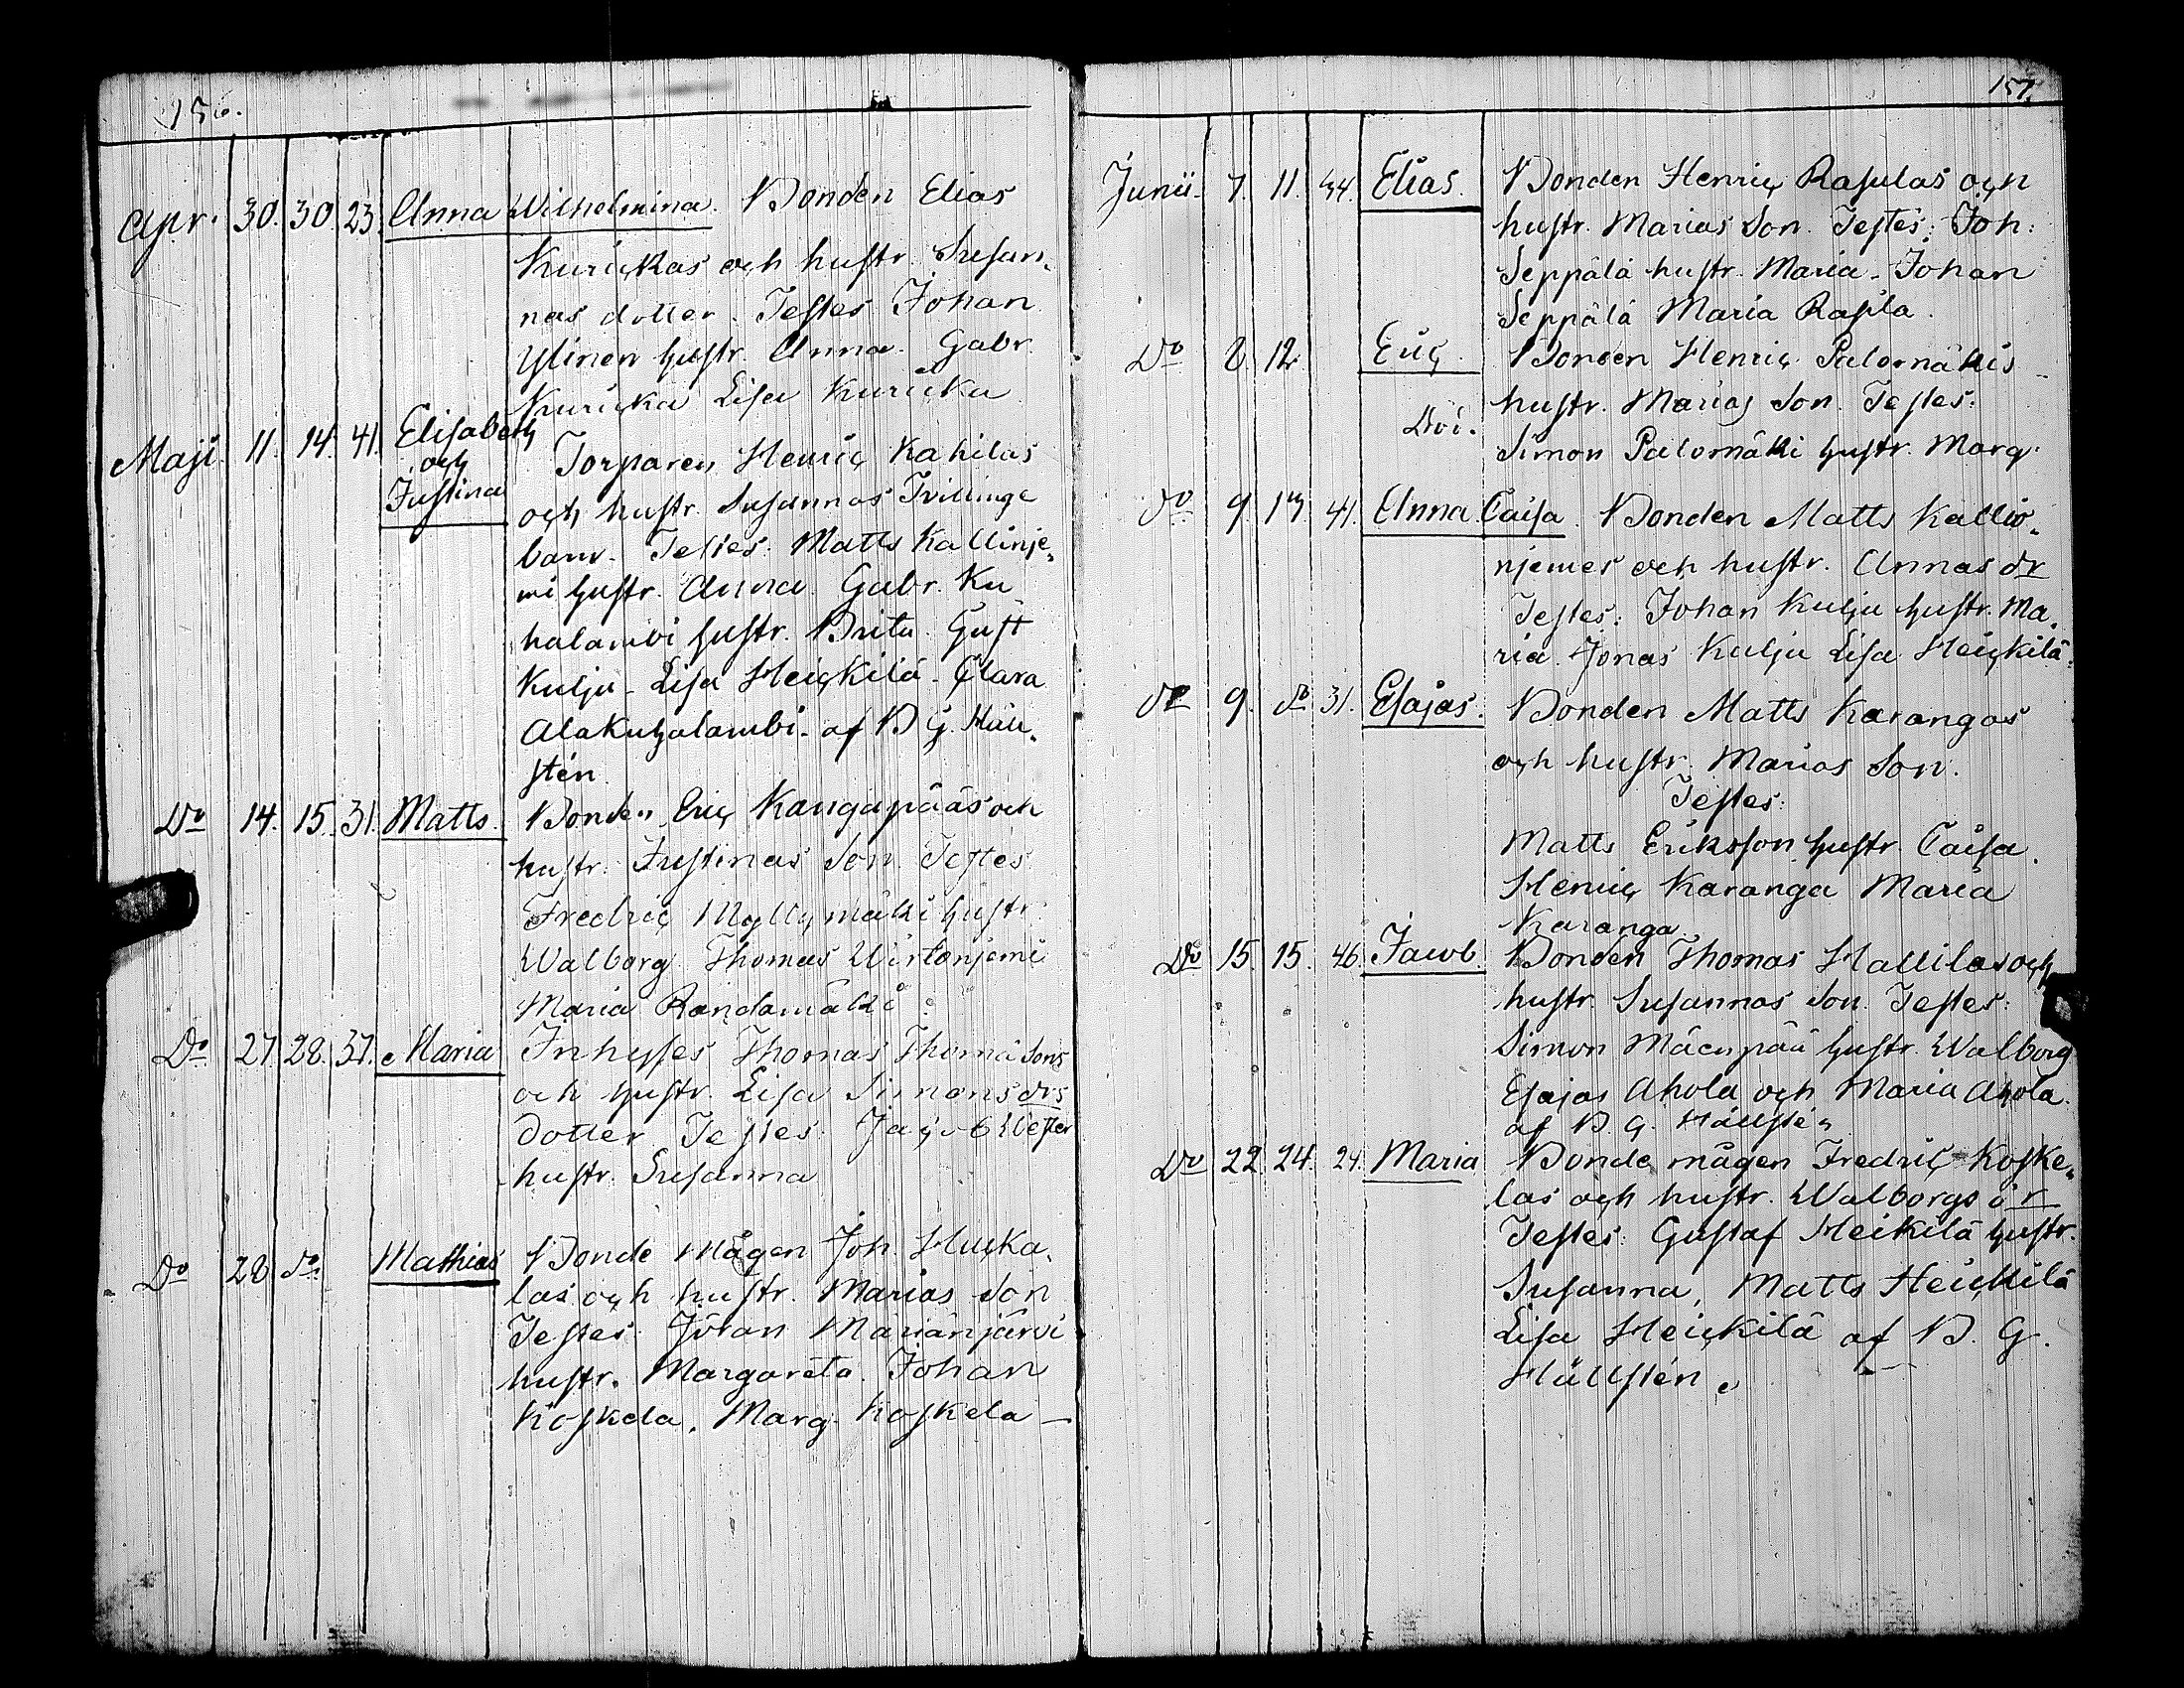 156.
Apr. 30. 30. 23. Anna Wilhelmina. Bonden Elias
Kurickas och hustr. Susan-
nas dotter. Testes Johan
Ylinen hustr. Anna. Gabr.
Kuricka Lisa Kuricka
Maji 11. 14. 41. Elisabeth
och
Justina
Torparen Henric Kahilas
och hustr. Susannas Tvillinge
barn. Testes. Matts Kallinje-
mi hustr. Anna. Gabr. Ku
halambi hustr. Brita. Gust
Kulju - Lisa Heickilä - Clara
Alakuhalambi. af B G. Häll-
stén
Do 14. 15. 31. Matts. Bonden Eric Kangapääs och
hustr. Justinas Son. Testes
Fredric Myllymäki hustr.
Walborg Thomas Wirtanjemi
Maria Randamäki.
Do 27. 28. 37. Maria Inhyses Thomas Thomæ Sons
och hustr. Lisa Simons drs
dotter Testes. Jacob Wester
hustr. Susanna
Do 28 do. Mathias Bonde Mågen Joh. Hucka-
las och hustr. Marias Son
Testes. Johan Marianjärvi
hustr. Margareta. Johan
Koskela. Marg. Koskela -
157.
Junii. 7. 11. 44. Elias. Bonden Henric Rasulas och
hustr. Marias Son. Testes: Joh:
Seppälä hustr. Maria - Johan
Seppälä Maria Rasula.
Do 8. 12. Eric. Bonden Henric Palomäkis
hustr. Marias Son. Testes.
Simon Palomäki hustr. Marg.
do 9. 41. Anna Caisa. Bonden Matts Kallio-
njemes och hustr. Annas dr
Testes: Johan Kulju hustr. Ma-
ria. Jonas Kulju Lisa Heickilä.
do 9. do 31. Esajas. Bonden Matts Karangas
och hustr. Marias Son.
Testes:
Matts Eriksson hustr. Caisa.
Henric Karanga Maria
Karanga.
Do 15. 15. 46. Jacob. Bonden Thomas Hallilas och
hustr. Susannas Son. Testes:
Simon Mäenpää hustr. Walborg
Esajas Ahola och Maria Ahola.
af B. G. Hällstén
Do 22. 24. 24. Maria Bonde mågen Fredric Koske-
las och hustr. Walborgs dr
Testes: Gustaf Heikilä hustr.
Susanna, Matts Heickilä
Lisa Heickilä af B. G.
Hällstén.